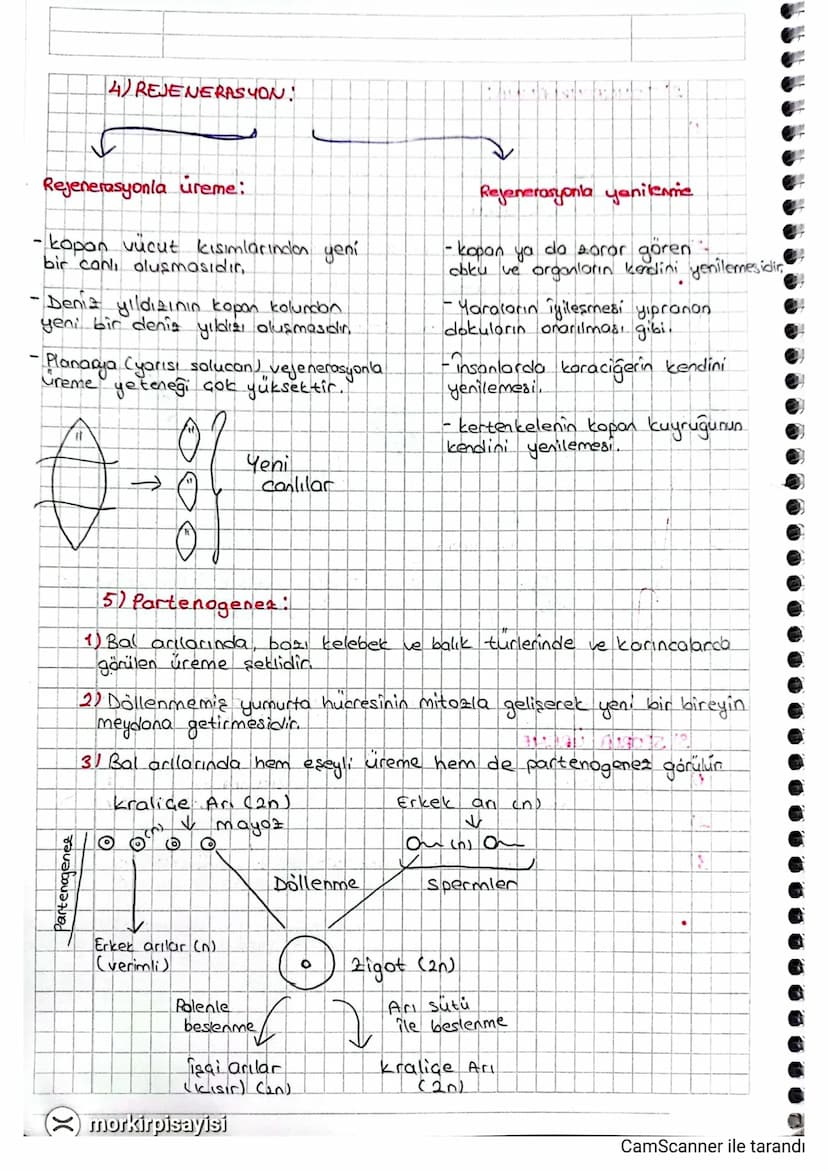 4) REJENERASYON:
Rejenerasyonla üreme:
- kopan vücut kısımlarından yeni
bir canlı oluşmasıdır.
- Deniz yıldızının kopan kolundan
yeni bir deniz yıldızı oluşmasıdır.
- Planarya (yarısı solucan) vejenerasyonla
üreme yeteneği çok yüksektir.
Yeni
canlılar
Rejenerasyonla yenilenme
- kopan ya da zarar gören
doku ve organların kendini yenilemesidir.
- Yaraların iyileşmesi yıpranan
dokuların onarılması gibi.
- insanlarda karaciğerin kendini
yenilemesi.
- kertenkelenin kopan kuyruğunun
kendini yenilemesi.
5) Partenogenez:
1) Bal arılarında, bazı kelebek ve balık türlerinde ve karıncalarda
görülen üreme şeklidir.
2) Döllenmemiş yumurta hücresinin mitozla gelişerek yeni bir bireyin
meydana getirmesidir.
3) Bal arılarında hem eşeyli üreme hem de partenogenez görülür.
kraliçe Arı (2n)
mayoz
(n)
Partenogenez
Erkek arılar (n)
(verimli)
Erkek arı (n)
(n)
spermler
Döllenme
Zigot (2n)
Polenle
beslenme
işçi arılar
(kısır) (2n)
Arı sütü
ile beslenme
kraliçe Arı
(2n)
morkirpisayisi
CamScanner ile tarandı